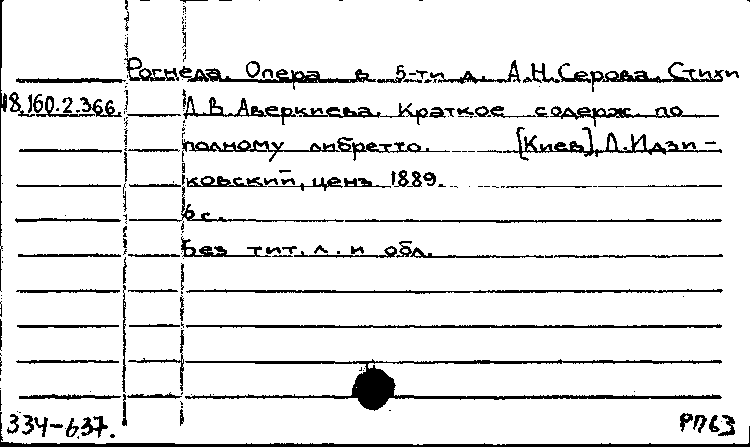 Рогнеда. Опера в 5-ти д. А.Н. Серова. Стихи
18.160.2.366. Д.В. Аверкиева. Краткое содерж. по
полному либретто. [Киев], Л. Идзи-
ковский, ценз. 1889.
6 с.
Без тит. л. и обл.
334-637. РП63